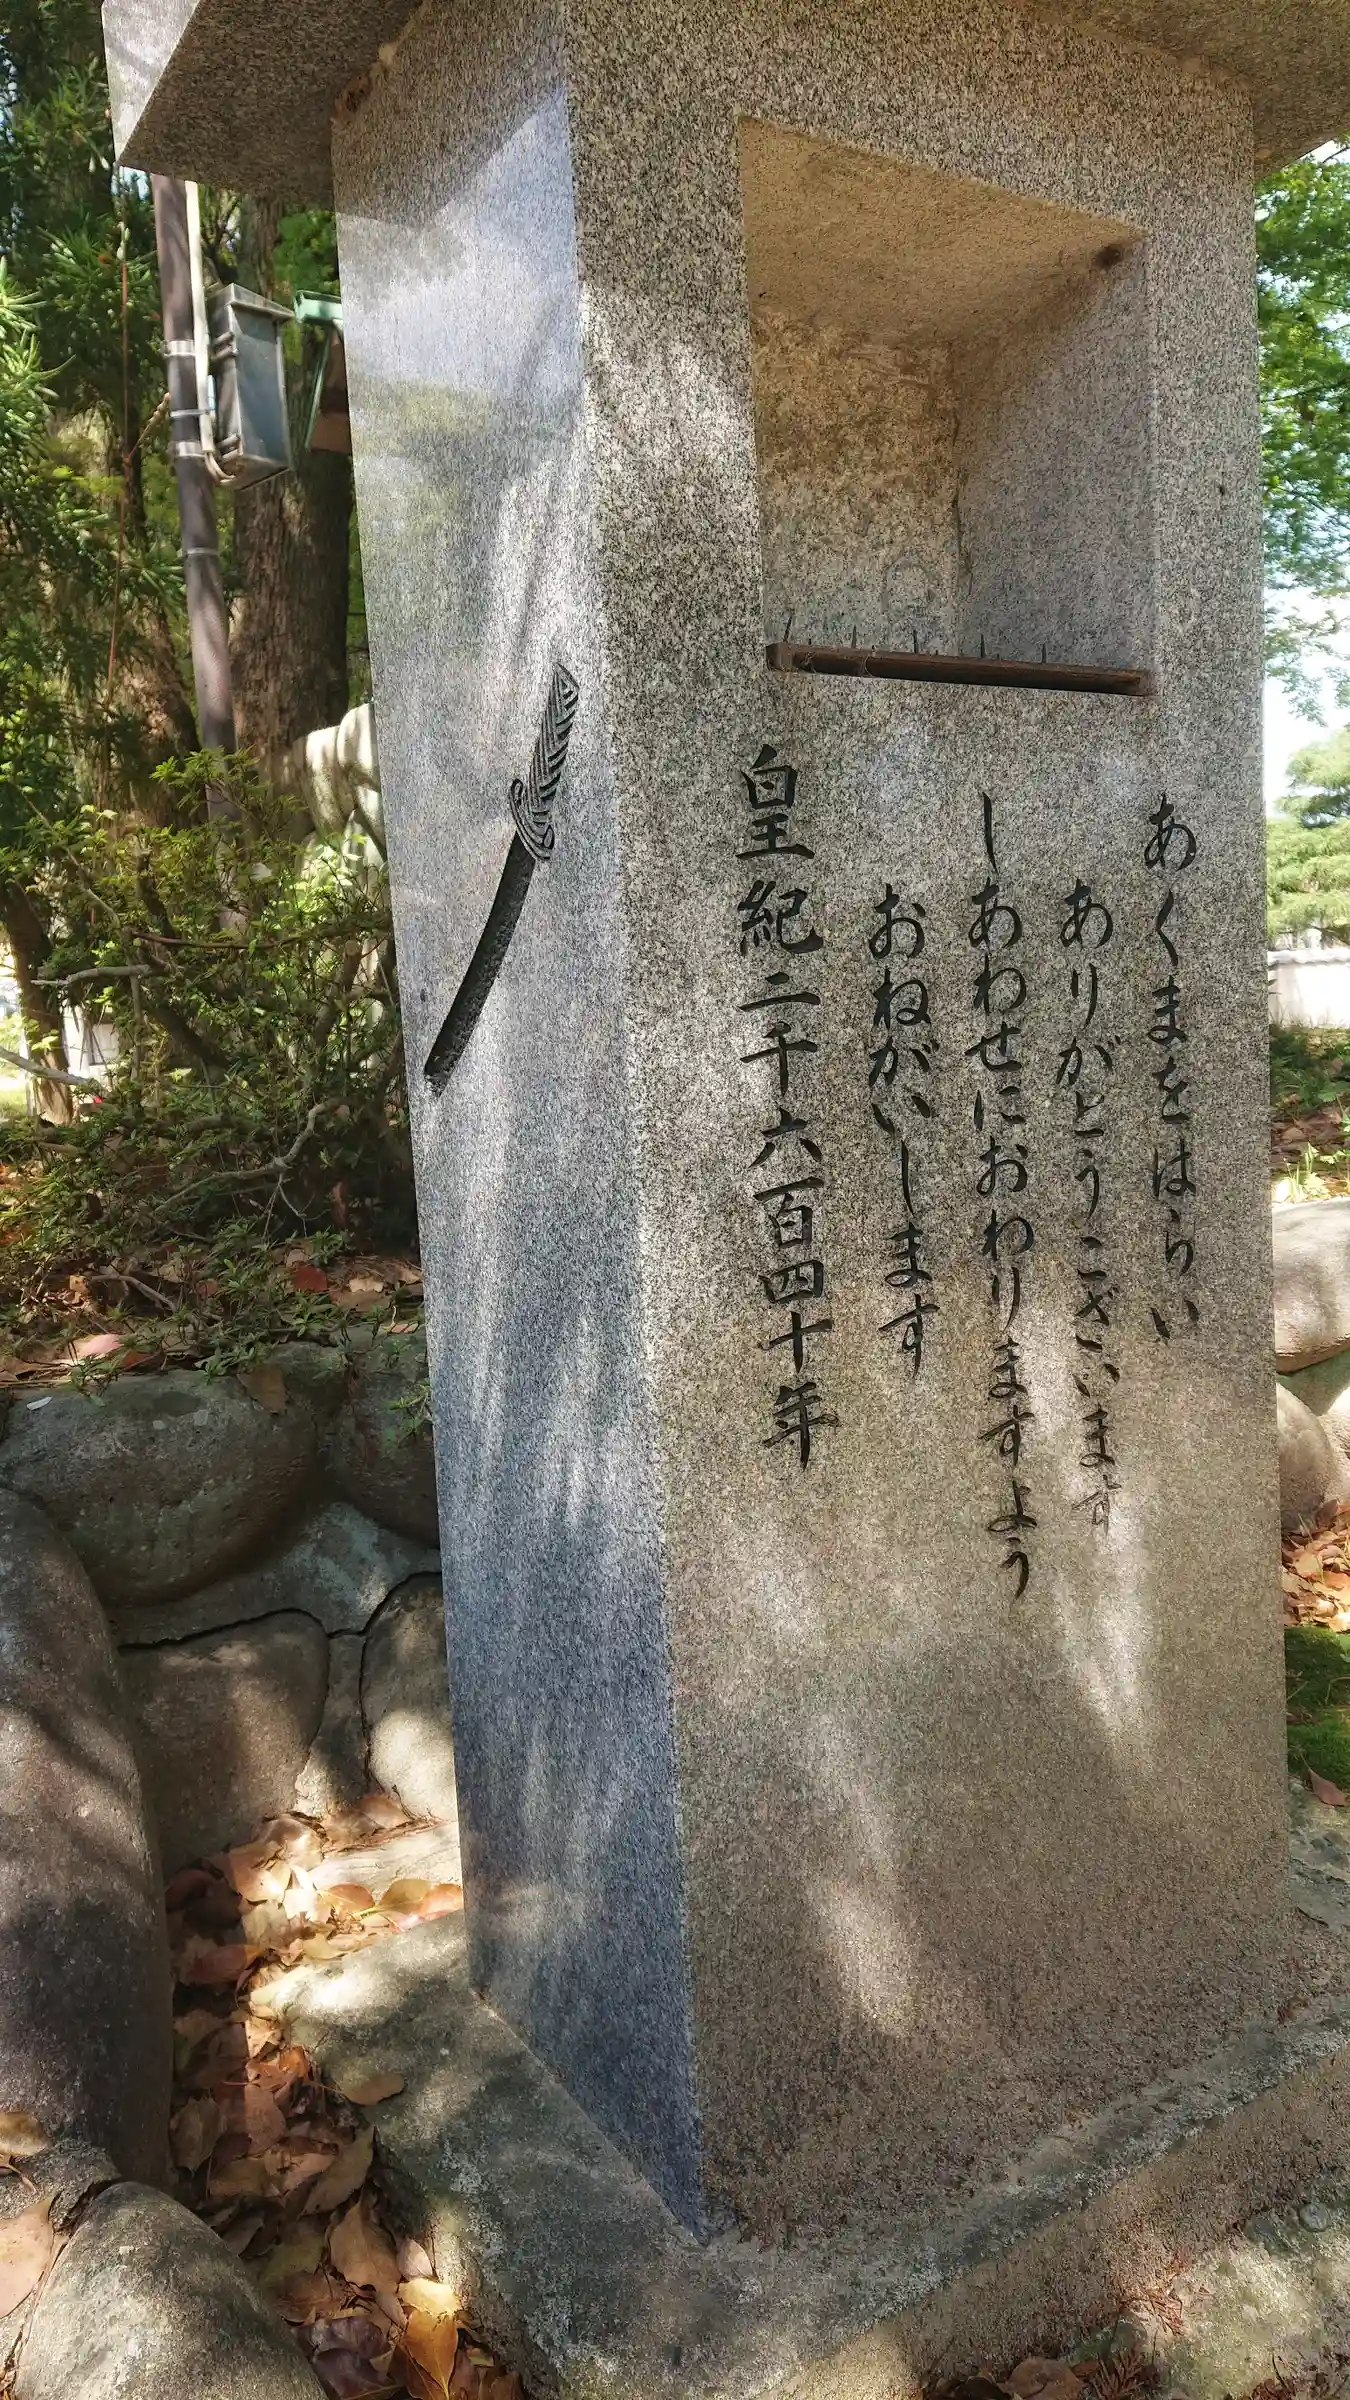 あくまをはらい
ありがとうございます
しあわせにおわりますよう
おねがいします
皇紀二千六百四十年